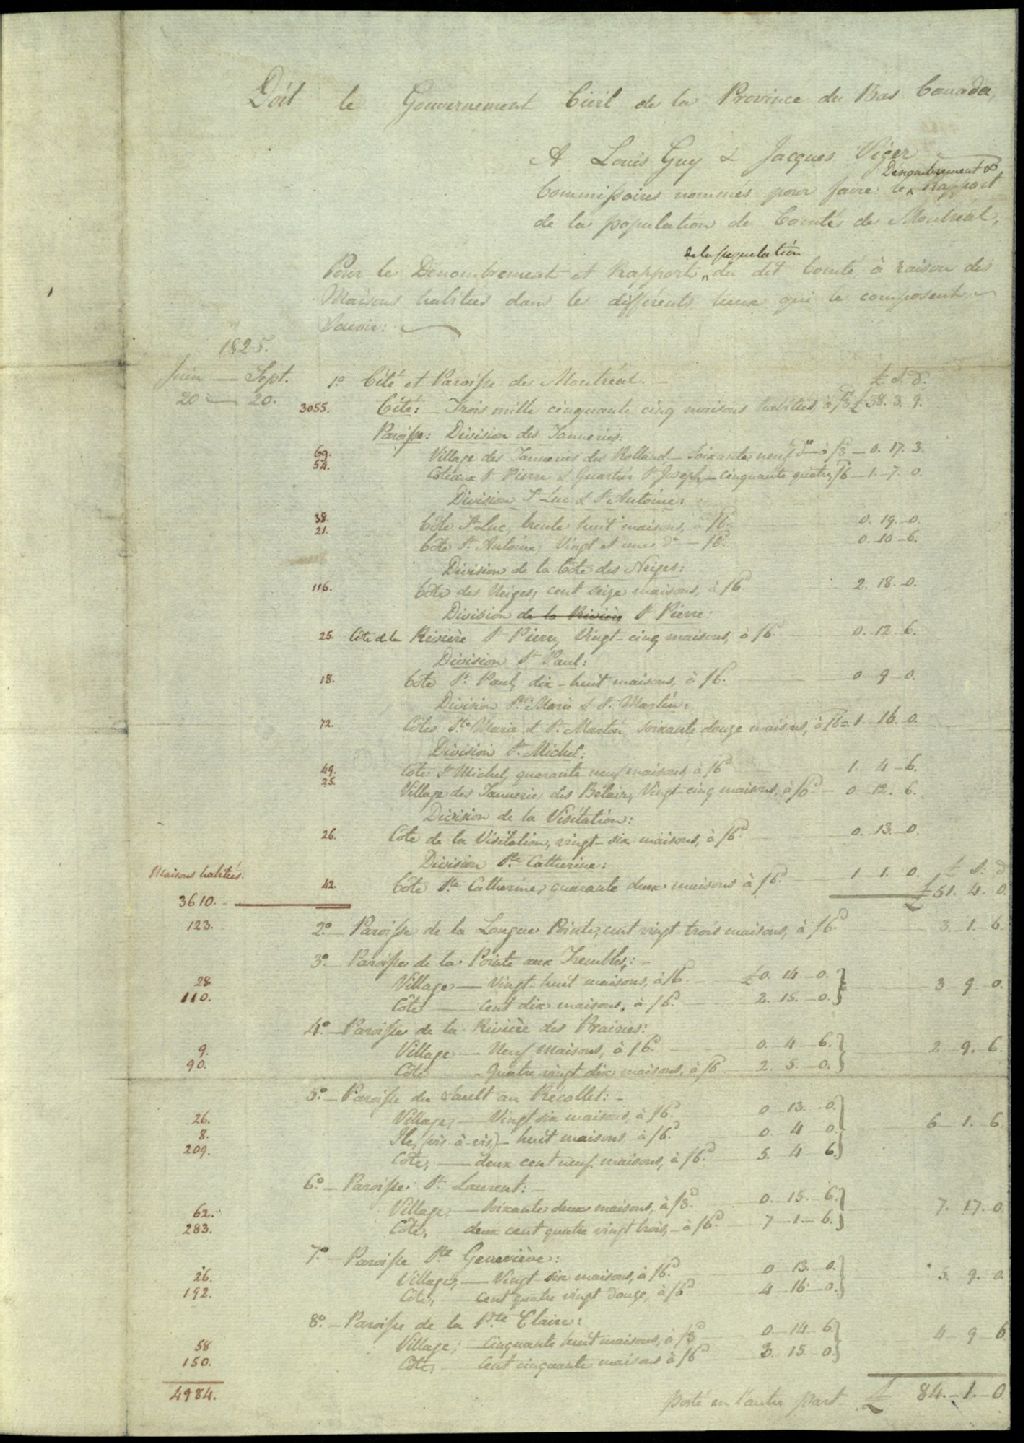 Doit le Gouvernement Civil de la Province du Bas Canada,
A Louis Guy & Jacques Viger
Dénombrement &
Commissaires nommés pour faire le Rapport
de la population du Comté de Montréal,
de la population
Pour le Dénombrement et Rapport du dit Comté, à raison des
Maisons habitées dans les différents lieux qui le composent
Savoir:
1825.
Juin — Sept.
20 — 20.
1º Cité et Paroisse de Montréal. — £ S. d.
3055. Cité: Trois mille cinquante cinq maisons habitées à /3d £38. 3. 9.
Paroisse: Division des Tanneries.
69. Village des Tanneries des Rolland — Soixante neuf do à /3 — 0. 17. 3.
54. Côteau St Pierre & Quartier St Joseph — cinquante quatre /6 — 1 — 7. 0.
Division St Luc & St Antoine:
38. Côte St Luc, trente huit maisons, à /6. 0. 19. 0.
21. Côte St Antoine, Vingt et une do — /6d. 0. 10 — 6.
Division de la Côte des Neiges:
116. Côte des Neiges, cent seize maisons, à /6d 2. 18. 0.
Division de la Rivière St Pierre:
25. Côte de la Rivière St Pierre, Vingt-cinq maisons, à /6d 0. 12. 6.
Division St Paul:
18. Côte St Paul, dix-huit maisons, à /6. 0 9 — 0.
Division Ste Marie & St Martin:
72. Côtes Ste Marie & St Martin, soixante douze maisons, à /6 = 1 16. 0.
Division St Michel:
49. Côte St Michel, quarante neuf maisons à /6d 1. 4 — 6.
25. Village des Tanneries des Bélair, Vingt cinq maisons, à /6d — 0 12. 6.
Division de la Visitation:
26. Côte de la Visitation, vingt-six maisons, à /6d 0. 13. 0.
Division Ste Catherine:
Maisons habitées. £ S. d
42. Côte Ste Catherine, quarante deux maisons à /6d. 1 1. 0.
3610. £51. 4. 0.
123. 2º — Paroisse de la Longue Pointe, cent vingt trois maisons, à /6d 3. 1. 6
3º — Paroisse de la Pointe aux Trembles: —
28 Village — Vingt-huit maisons, à /6d £0. 14. 0.
110. Côte — cent dix maisons, à /6d 2. 15. 0. 3 9. 0.
4º — Paroisse de la Rivière des Prairies:
9. Village — Neuf maisons, à /6d 0. 4 6.
90. Côte — Quatre vingt dix maisons, à /6d 2. 5 — 0. 2 9. 6
5º — Paroisse du Sault au Récollet: —
26. Village, — Vingt six maisons, à /6d 0. 13. 0.
8. Ile, (vis à vis) — huit maisons à /6d. 0. 4 0. 6 — 1. 6.
209. Côte, — deux cent neuf maisons, à /6d 5. 4 6.
6º — Paroisse St Laurent: —
62. Village, — Soixante deux maisons, à /3d 0. 15. 6.
283. Côte, deux cent quatre vingt trois, — à /6d. 7 — 1 — 6. 7. 17. 0
7º — Paroisse Ste Geneviève:
26. Village, — Vingt six maisons, à /6d. 0 13. 0.
192. Côte, cent quatre vingt douze, à /6d 4 16. 0. 5. 9. 0
8º — Paroisse de la Pte Claire:
58 Village, — Cinquante huit maisons, à /3d 0 — 14. 6
150. Côte, — Cent cinquante maisons à /6d 3. 15. 0. 4 — 9 — 6
4984. porté en l'autre part £ 84. 1. 0